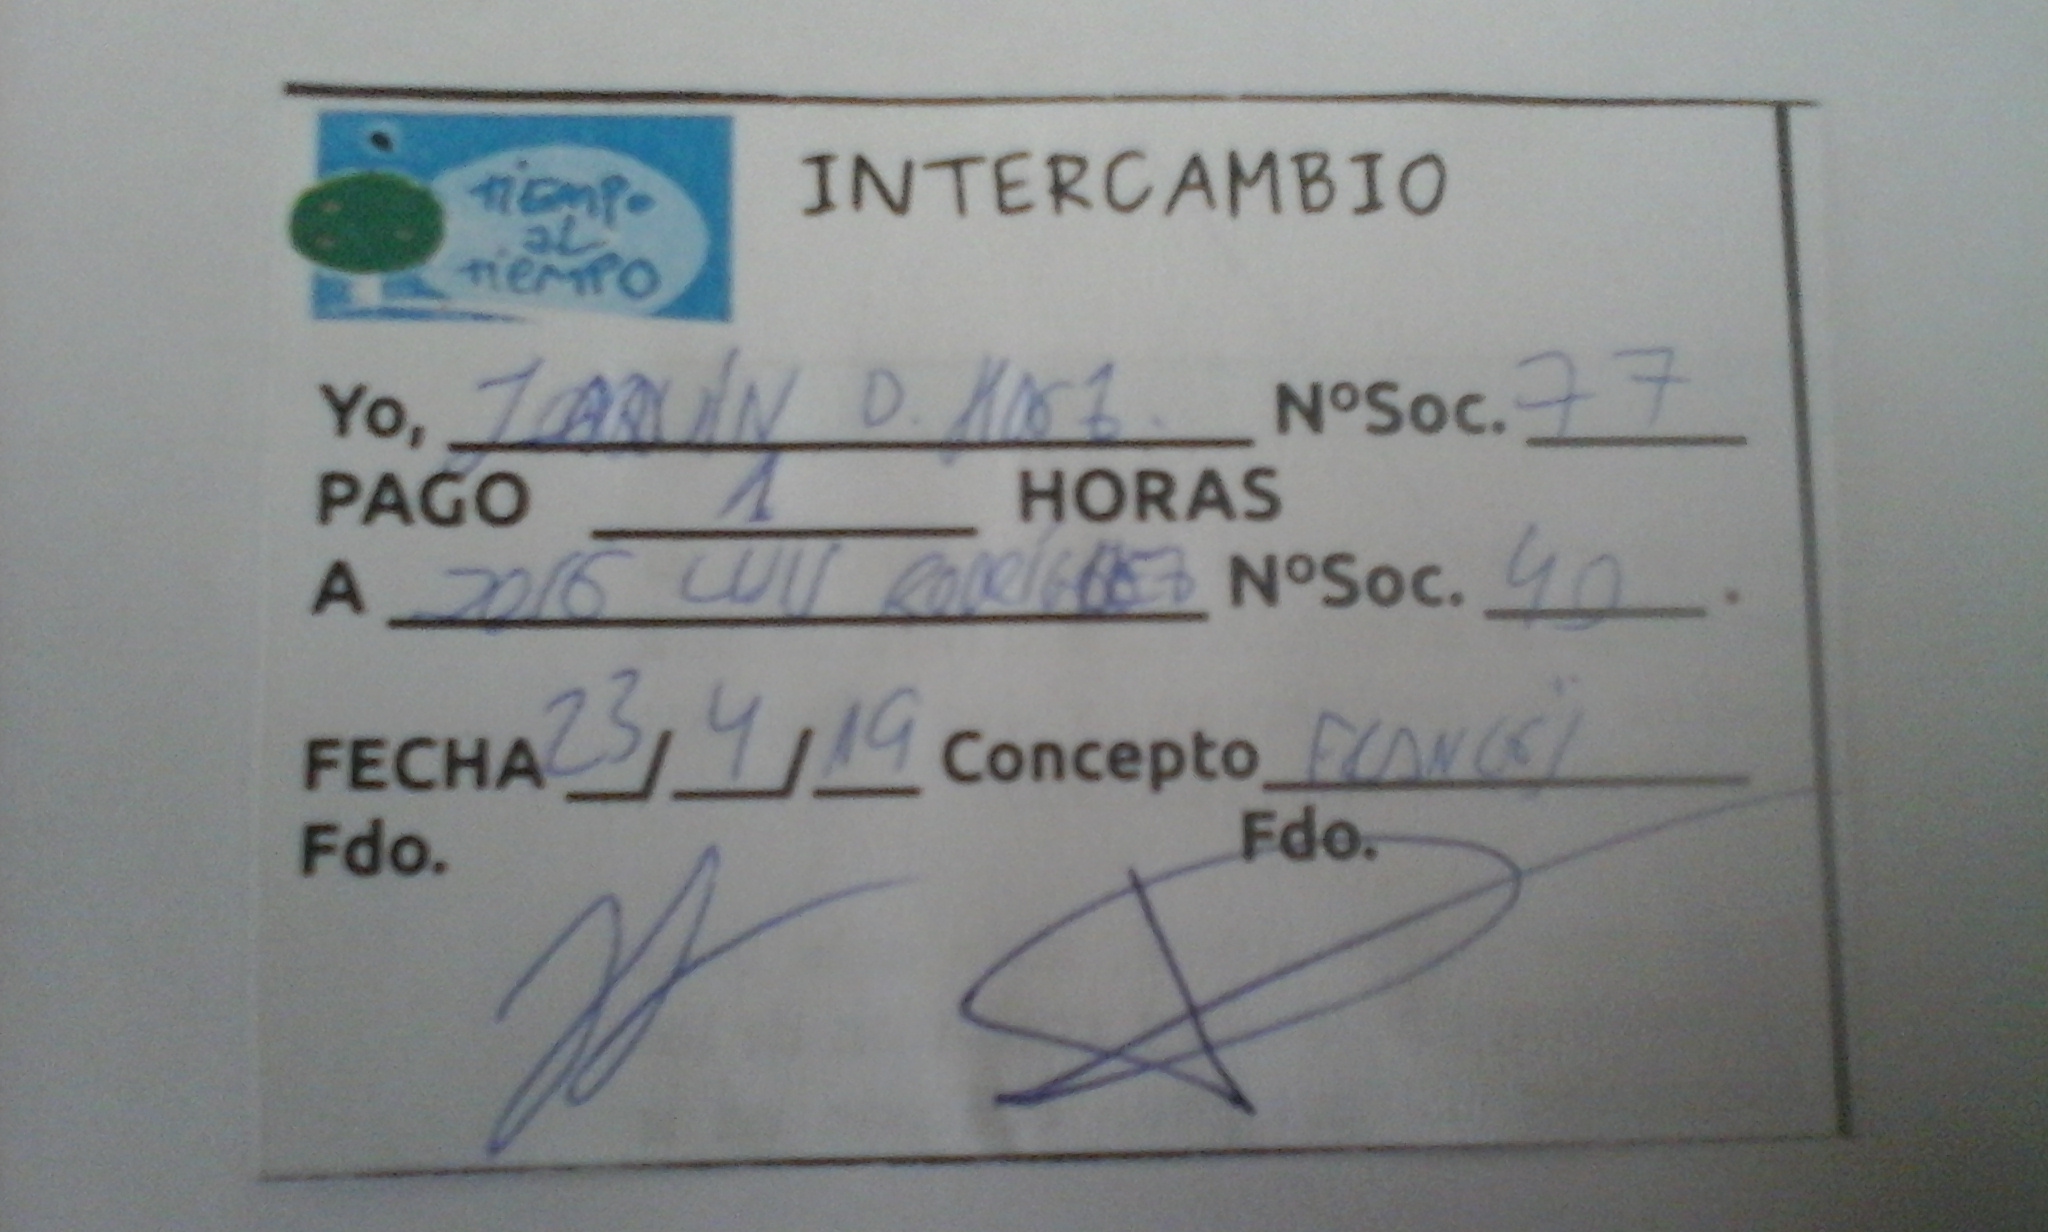 tiempo
al
tiempo
INTERCAMBIO
Yo, JOAQUÍN D. NºSoc. 77
PAGO 1 HORAS
A LUIS RODRÍGUEZ NºSoc. 40 .
FECHA 23/4/19 Concepto FRANCÉS
Fdo. Fdo.